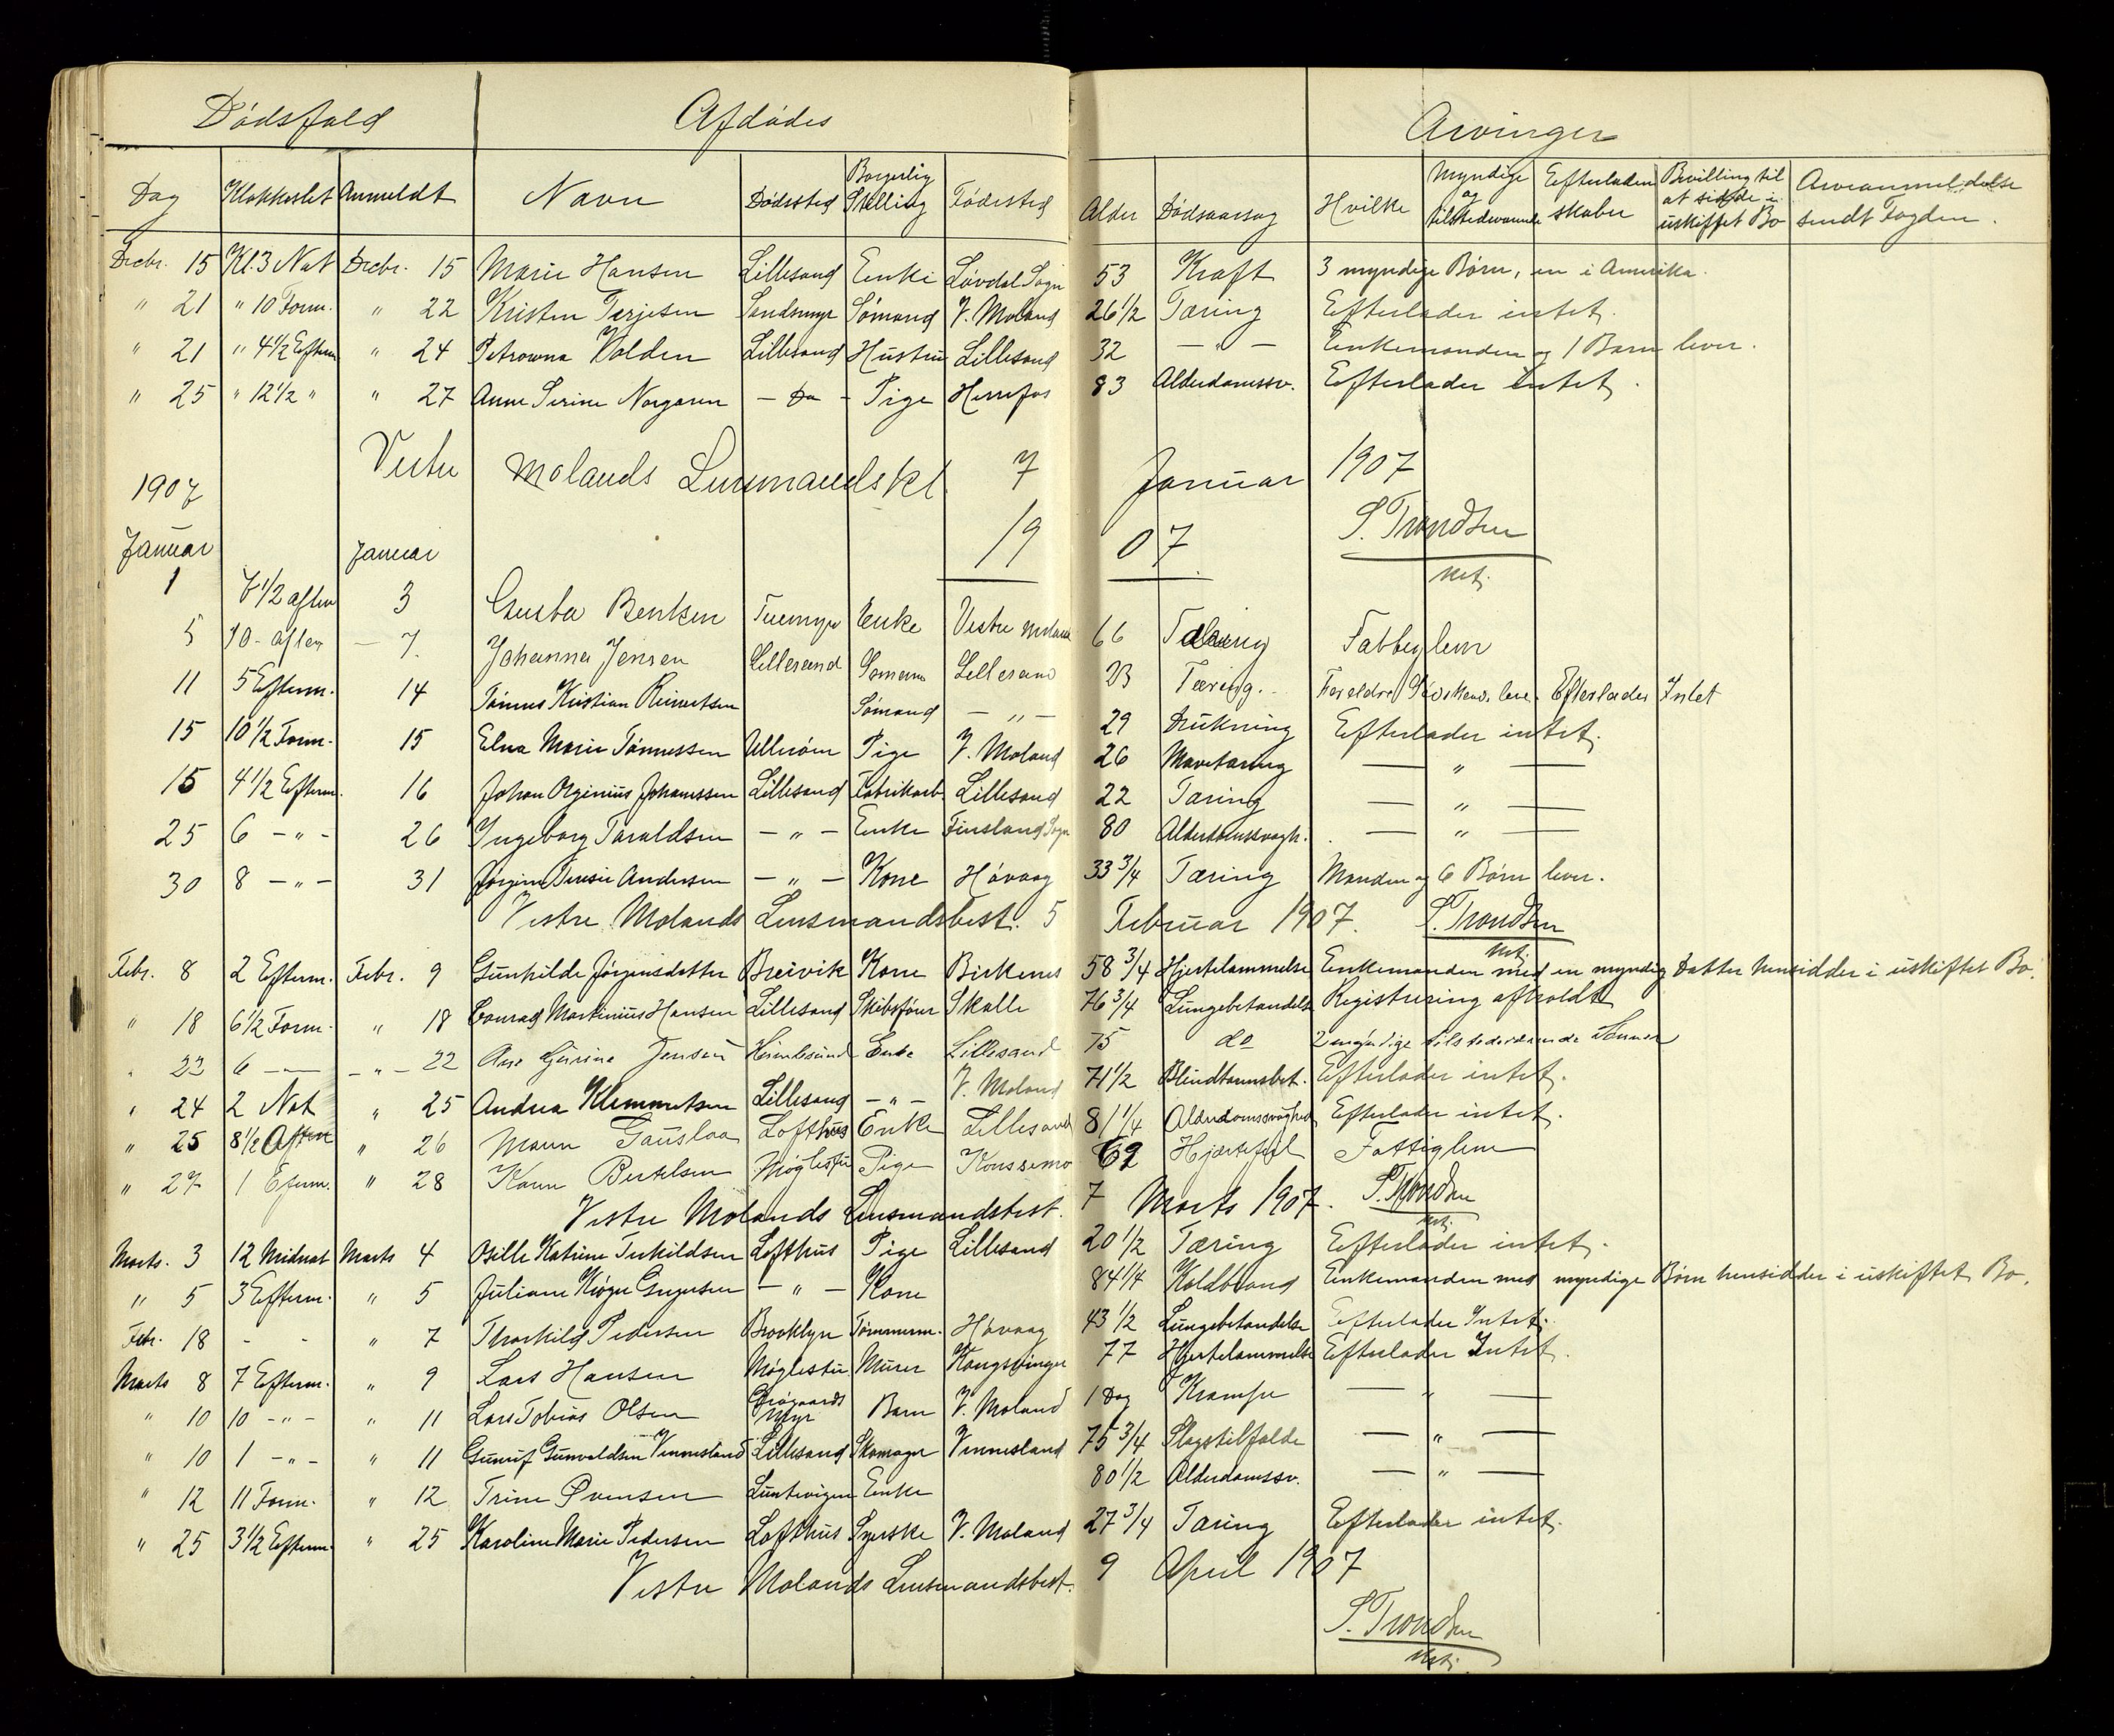 Dødsfald Afdødes Arvinger
Dag Klokkeslet Anmeldt Navn Dødssted Borgerlig Stilling Fødested Alder Dødsaarsag Hvilke Myndige og tilstedeværende Efterladenskaber Bevilling til at sidde i uskiftet Bo Arveanmeldelse sendt Fogden.
Decbr. 15 Kl. 3 Nat Decbr. 15 Marie Hansen Lillesand Enke Løvdal Sogn 53 Kræft 3 myndige Børn, en i Amerika.
" 21 " 10 Form. " 22 Kristen Terjesen Sandsmyr Sømand V. Moland 26 1/2 Tæring Efterlader intet.
" 21 " 4 1/2 Efterm " 24 Petrowna Volden Lillesand Hustru Lillesand 32 — " — Enkemanden og 1 Barn lever.
" 25 " 12 1/2 " " 27 Anne Serine Norgaren — Do — Pige Herefos 83 Alderdomssv. Efterlader intet.
Vestre Molands Lensmandskt. 7 Januar 1907
1907 19 07 S. Trondsen
Januar Januar
1 6 1/2 aften 3 Gusta Bentsen Tuemyr Enke Vestre Moland 66 Tæring Fattiglem
5 10 - aften — 7. Johannes Jensen Lillesand Sømand Lillesand 23 Tæring. Foreldre Søskend. leve. Efterlader Intet
11 5 Efterm. 14 Tønnes Kristian Reinertsen Sømand — " — 29 Drukning Efterlader intet.
15 10 1/2 Form. 15 Elna Marie Tønnessen Ulleröen Pige V. Moland 26 Mavetæring — " —
15 4 1/2 Efterm. 16 Johan Orginius Johanssen Lillesand Fabrikarb. Lillesand 22 Tæring — " —
25 6 — " — 26 Ingeborg Taraldsen — " — Enke Finsland Sogn 80 Alderdomssvagh. — " —
30 8 — " — 31 Jørgine Teresie Andersen — " — Kone Høvaag 33 3/4 Tæring Manden og 6 Børn lever.
Vestre Molands Lensmandsbest. 5 Februar 1907. S. Trondsen
Febr. 8 2 Efterm. Febr. 9 Gunhilde Jørgensdatter Breivik Kone Birkenes 58 3/4 Hjertelammelse Enkemanden med en myndig Datter hensidder i uskiftet Bo.
" 18 6 1/2 Form. " 18 Conrad Martinius Hansen Lillesand Skibsfører Skalle 76 3/4 Lungebetændelse Registrering afholdt
" 22 6 — — " — 22 Ane Gurine Jensen Enke Lillesand 75 do 2 myndige tilstedeværende Sønner
" 24 2 Nat " 25 Andrea Klemmetsen Lillesand — " — V. Moland 71 1/2 Blindtarmsbet. Efterlader intet.
" 25 8 1/2 Aften " 26 Maren Gauslaa Lofthus Enke Lillesand 81 1/4 Alderdomssvaghed Efterlader intet.
" 27 1 Efterm. " 28 Karen Bertelsen Møglestu Pige 69 Hjertefeil Fattiglem
Vestre Molands Lensmandsbest. 7 Marts 1907. S. Trondsen
Marts. 3 12 Midnat Marts 4 Osille Katrine Terkildsen Lofthus Pige Lillesand 20 1/2 Tæring Efterlader intet.
" 5 3 Efterm. " 5 Juliane Gregersen — " — Kone 84 1/4 Koldbrand Enkemanden med myndige Børn hensidder i uskiftet Bo.
Febr. 18 - - " 7 Thorkild Pedersen Brooklyn Tømmerm. Høvaag 43 1/2 Lungebetændelse Efterlader Intet.
Marts 8 7 Efterm. " 9 Lars Hansen Møglestu Murer Kongsvinger 77 Hjertelammelse Efterlader Intet.
" 10 10 — " — " 11 Lars Tobias Olsen Barn V. Moland 1 Dag Krampe — " —
" 10 1 — " — " 11 Gunuf Gunvaldsen Vennesland Lillesand Skomager Vennesland 75 3/4 Slagtilfælde — " —
" 12 11 Form. " 12 Trine Svensen Luntevigen Enke 80 1/2 Alderdomssv. — " —
" 25 3 1/2 Efterm. " 25 Karoline Marie Pedersen Lofthus Syerske V. Moland 27 3/4 Tæring Efterlader intet.
Vestre Molands Lensmandsbest. 9 April 1907
S. Trondsen